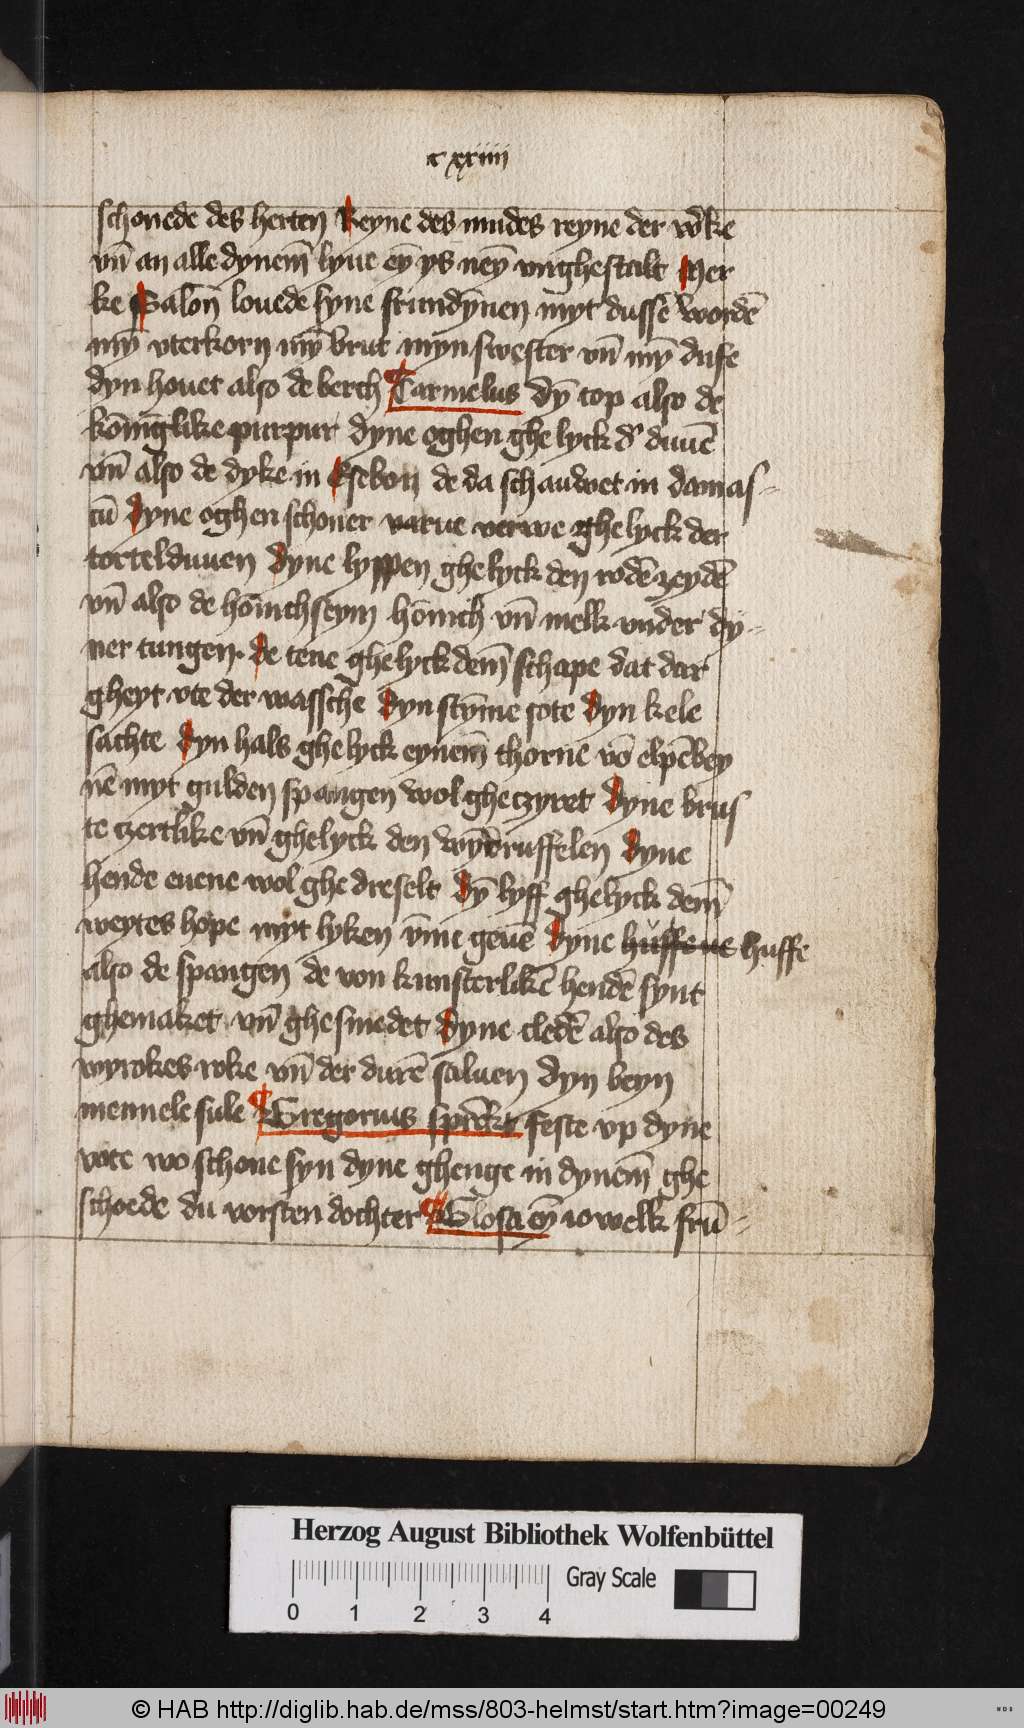 c xxiiii
schonede des herten Reyne des mudes reyne der w̄ke
vn̄ an alle dynem̄ lyue ey̅ ys ney̅ vnghestalt Mer
ke Salon̄ louede syne frundy̅nen myt dussē wordē
my̅ vterkorn my̅ brut myn swester vn̄ my̅ dufe
dyn houet also de berch Carmelus dy̅ top also de
kōnīglike purpur dyne oghen ghelyck d' duuē
vn̄ also de dyke in Esebon de da schauwet in damas-
cū dyne oghen schoner varue verwe ghelyck der
tortelduuen dyne lyppen ghelyck den rodē zeydē
vn̄ also de hōnichseym hōnich vn̄ melk vnder dy-
ner tungen. de tene ghelyck dem̄ schape dat dar
gheyt vte der wasschē dyn sty̅me sote dyn kele
sachte dyn hals ghelyck eynem̄ thorne vō elpēbey
nē myt gulden spangen wol gheczyret dyne brus
te czertlike vn̄ ghelyck den wy̅druffelen dyne
hende euene wol ghedreselt dy̅ lyff ghelyck dem̄
weytes hope myt lyken v̄me geuē dyne huffene huffe
also de spangen de von kunsterlikē hendē synt
ghemaket vn̄ ghesmedet dyne cledē also des
wyrokes roke vn̄ der durē saluen dyn beyn
mermele sule Gregorius sprēkt feste vp dyne
vote wo schone syn dyne ghenge in dynem̄ ghe
schoede du vorsten dochter Glosa ey̅ iowelk frū-
Herzog August Bibliothek Wolfenbüttel
Gray Scale
0 1 2 3 4
© HAB http://diglib.hab.de/mss/803-helmst/start.htm?image=00249